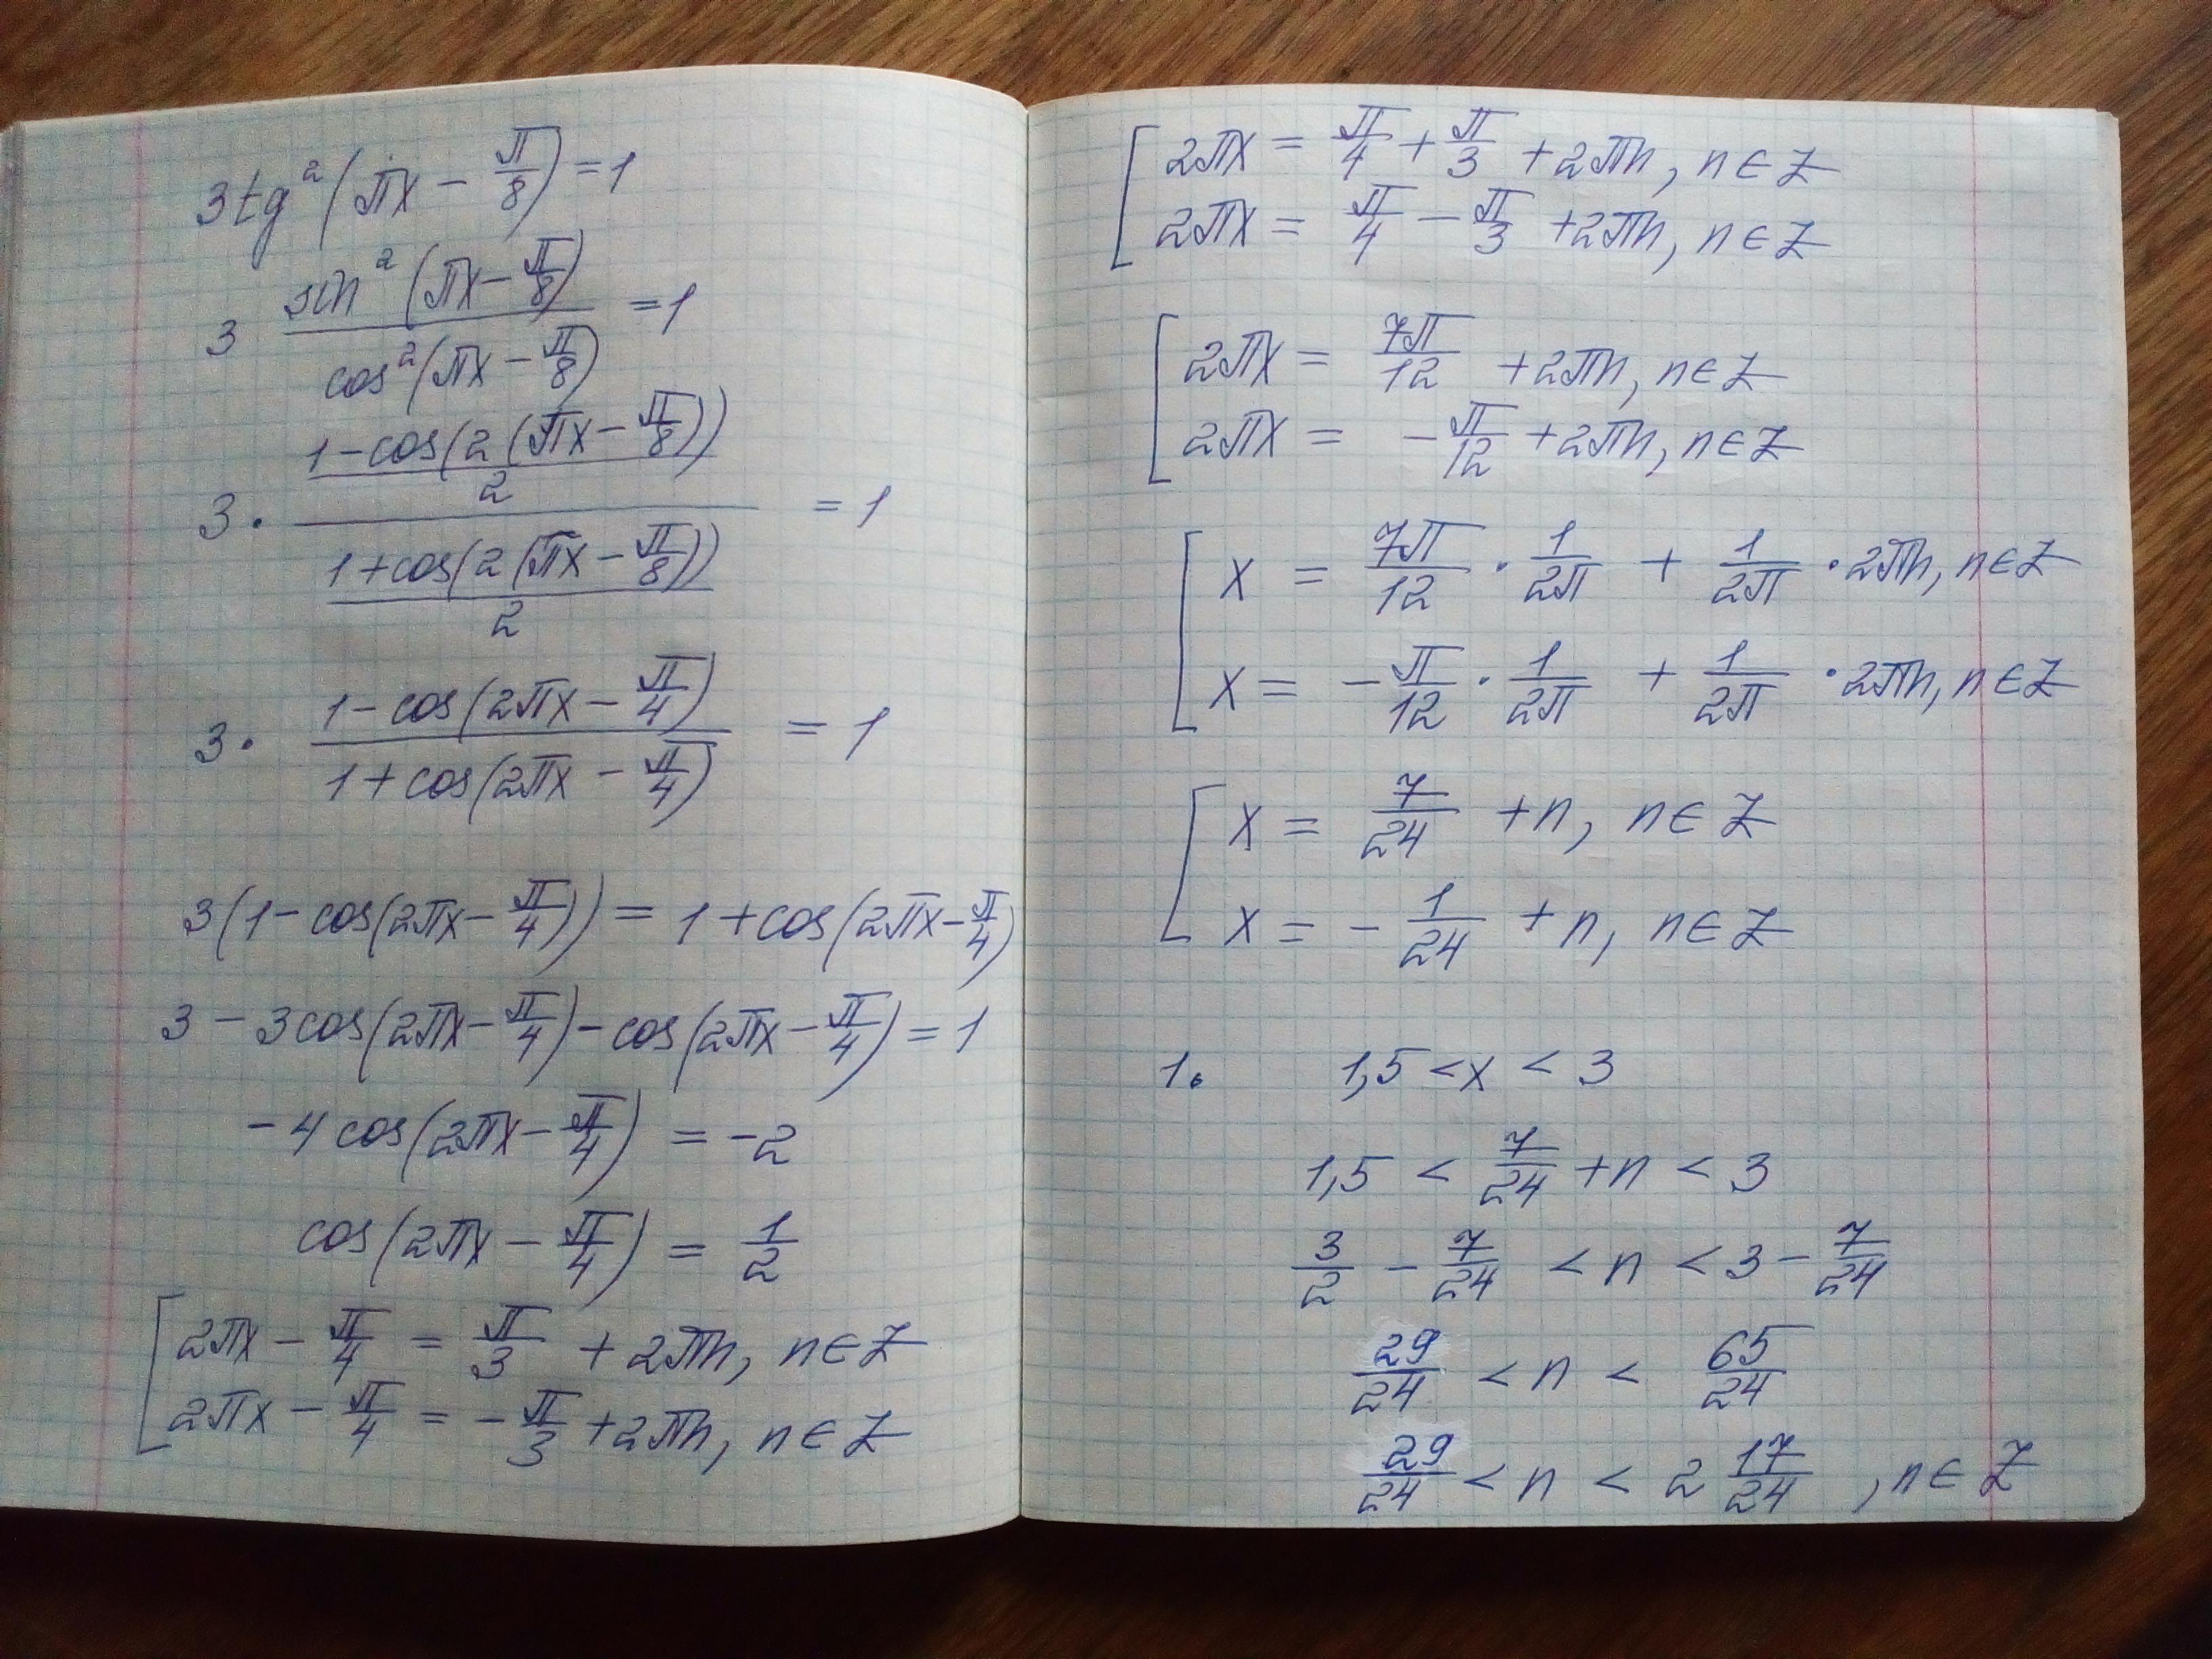 3tg²(πx − π/8) = 1
3 sin²(πx − π/8) / cos²(πx − π/8) = 1
3 · ((1 − cos(2(πx − π/8)))/2) / ((1 + cos(2(πx − π/8)))/2) = 1
3 · (1 − cos(2πx − π/4)) / (1 + cos(2πx − π/4)) = 1
3(1 − cos(2πx − π/4)) = 1 + cos(2πx − π/4)
3 − 3cos(2πx − π/4) − cos(2πx − π/4) = 1
−4cos(2πx − π/4) = −2
cos(2πx − π/4) = 1/2
[ 2πx − π/4 = π/3 + 2πn, n ∈ Z
2πx − π/4 = −π/3 + 2πn, n ∈ Z
[ 2πx = π/4 + π/3 + 2πn, n ∈ Z
2πx = π/4 − π/3 + 2πn, n ∈ Z
[ 2πx = 7π/12 + 2πn, n ∈ Z
2πx = −π/12 + 2πn, n ∈ Z
[ x = 7π/12 · 1/2π + 1/2π · 2πn, n ∈ Z
x = −π/12 · 1/2π + 1/2π · 2πn, n ∈ Z
[ x = 7/24 + n, n ∈ Z
x = −1/24 + n, n ∈ Z
1. 1,5 < x < 3
1,5 < 7/24 + n < 3
3/2 − 7/24 < n < 3 − 7/24
29/24 < n < 65/24
29/24 < n < 2 17/24, n ∈ Z